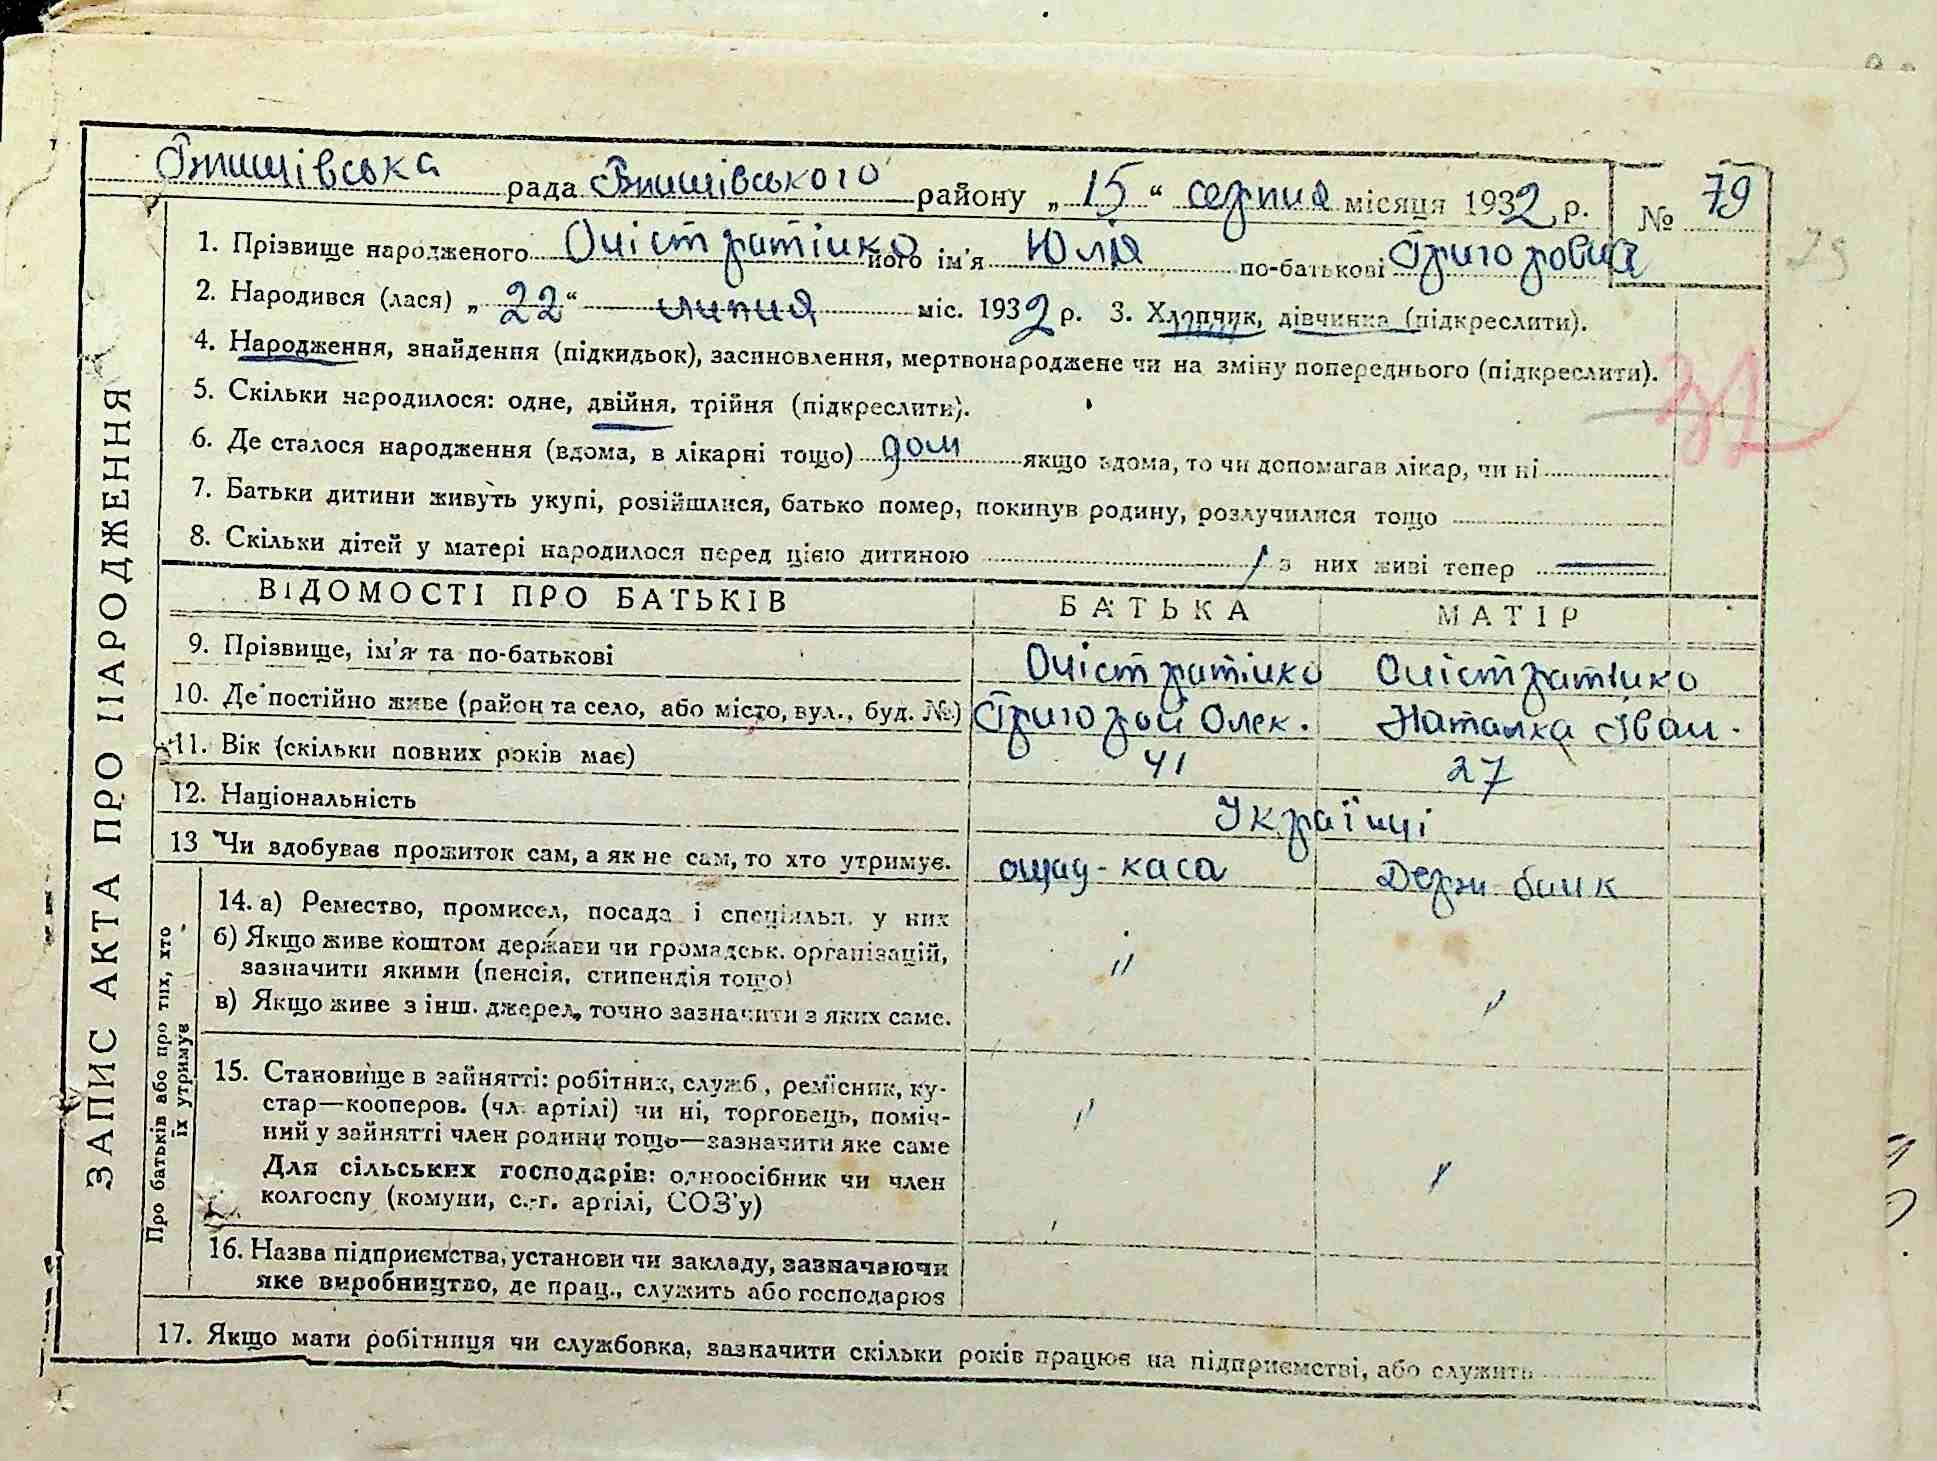 рада району „ 15 “ серпня місяця 1932 р. № 79
79
1. Прізвище народженого Оністратінко його ім'я Юлія по-батькові Григоровна
2. Народився (лася) „ 22 “ липня міс. 1932 р. 3. Хлопчик, дівчинка (підкреслити).
4. Народження, знайдення (підкидьок), засиновлення, мертвонароджене чи на зміну попереднього (підкреслити).
5. Скільки народилося: одне, двійня, трійня (підкреслити).
6. Де сталося народження (вдома, в лікарні тощо) дом якщо вдома, то чи допомагав лікар, чи ні
7. Батьки дитини живуть укупі, розійшлися, батько помер, покинув родину, розлучилися тощо
8. Скільки дітей у матері народилося перед цією дитиною з них живі тепер —
ВІДОМОСТІ ПРО БАТЬКІВ БАТЬКА МАТІР
9. Прізвище, ім'я та по-батькові Оністратінко Оністратінко
10. Де постійно живе (район та село, або місто, вул., буд. №) Григорой Олек. Наталка Іван.
11. Вік (скільки повних років має) 41 27
12. Національність Українці
13 Чи здобував прожиток сам, а як не сам, то хто утримує. ощад-каса Держ-банк
14. а) Ремество, промисел, посада і спеціяльн. у них
б) Якщо живе коштом держави чи громадськ. організацій, "
зазначити якими (пенсія, стипендія тощо)
в) Якщо живе з інш. джерел, точно зазначити з яких саме. "
15. Становище в зайнятті: робітник, служб, ремісник, ку-
стар—кооперов. (чл. артілі) чи ні, торговець, поміч- "
ний у зайнятті член родини тощо—зазначити яке саме
Для сільських господарів: одноосібник чи член "
колгоспу (комуни, с.-г. артілі, СОЗ'у)
16. Назва підприємства, установи чи закладу, зазначаючи
яке виробництво, де прац., служить або господарює
17. Якщо мати робітниця чи службовка, зазначити скільки років працює на підприємстві, або служить
ЗАПИС АКТА ПРО НАРОДЖЕННЯ
Про батьків або про тих, хто
їх утримує